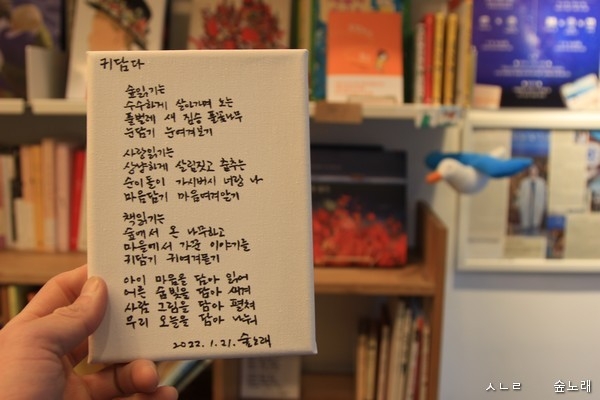 귀담다
숲읽기는
수수하게 살아가며 노는
풀벌레 새 짐승 풀꽃나무
눈담기 눈여겨보기
사랑읽기는
상냥하게 살림짓고 춤추는
순이돌이 가시버시 너랑 나
마음담기 마음여겨안기
책읽기는
숲에서 온 나무하고
마을에서 가꾼 이야기를
귀담기 귀여겨듣기
아이 마음을 담아 읽어
어른 숨빛을 담아 새겨
사람 그림을 담아 펼쳐
우리 오늘을 담아 나눠
2022.1.21. 숲노래
ㅅㄴㄹ 숲노래